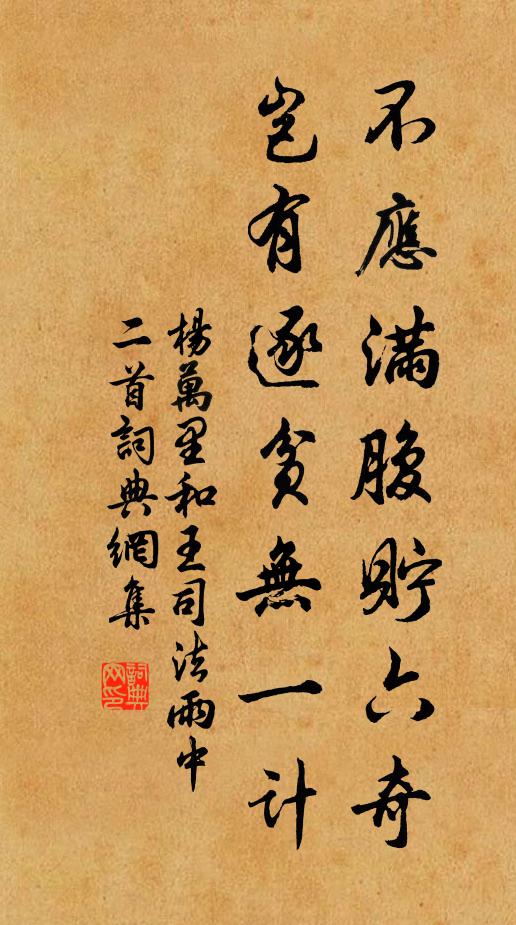 不應滿腹貯六奇
豈有逐貧無一計
楊萬里和王司法雨中
二首詞典網集
詞典
网印